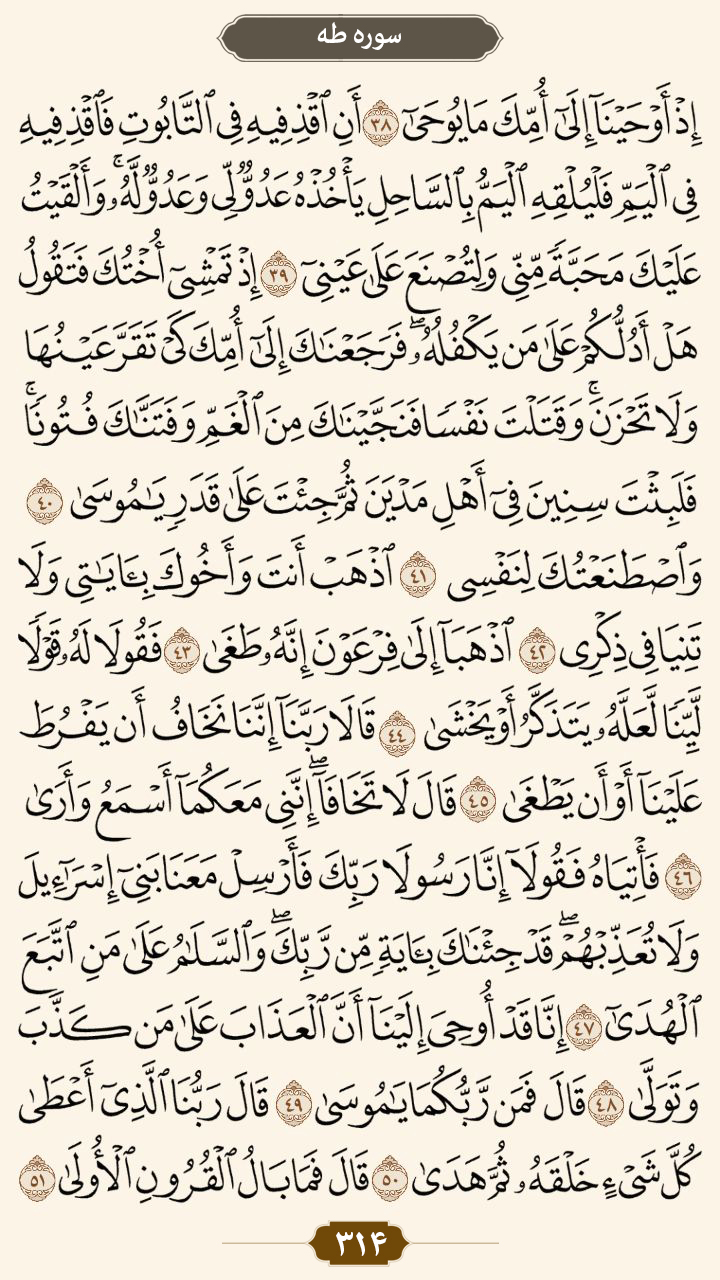 سوره طه
إِذْ أَوْحَيْنَآ إِلَىٰٓ أُمِّكَ مَا يُوحَىٰٓ ٣٨ أَنِ ٱقْذِفِيهِ فِى ٱلتَّابُوتِ فَٱقْذِفِيهِ
فِى ٱلْيَمِّ فَلْيُلْقِهِ ٱلْيَمُّ بِٱلسَّاحِلِ يَأْخُذْهُ عَدُوٌّ لِّى وَعَدُوٌّ لَّهُۥ ۚ وَأَلْقَيْتُ
عَلَيْكَ مَحَبَّةً مِّنِّى وَلِتُصْنَعَ عَلَىٰ عَيْنِىٓ ٣٩ إِذْ تَمْشِىٓ أُخْتُكَ فَتَقُولُ
هَلْ أَدُلُّكُمْ عَلَىٰ مَن يَكْفُلُهُۥ ۖ فَرَجَعْنَاكَ إِلَىٰٓ أُمِّكَ كَىْ تَقَرَّ عَيْنُهَا
وَلَا تَحْزَنَ ۚ وَقَتَلْتَ نَفْسًا فَنَجَّيْنَاكَ مِنَ ٱلْغَمِّ وَفَتَنَّاكَ فُتُونًا ۚ
فَلَبِثْتَ سِنِينَ فِىٓ أَهْلِ مَدْيَنَ ثُمَّ جِئْتَ عَلَىٰ قَدَرٍ يَامُوسَىٰ ٤٠
وَٱصْطَنَعْتُكَ لِنَفْسِى ٤١ ٱذْهَبْ أَنتَ وَأَخُوكَ بِـَٔايَاتِى وَلَا
تَنِيَا فِى ذِكْرِى ٤٢ ٱذْهَبَآ إِلَىٰ فِرْعَوْنَ إِنَّهُۥ طَغَىٰ ٤٣ فَقُولَا لَهُۥ قَوْلًا
لَّيِّنًا لَّعَلَّهُۥ يَتَذَكَّرُ أَوْ يَخْشَىٰ ٤٤ قَالَا رَبَّنَآ إِنَّنَا نَخَافُ أَن يَفْرُطَ
عَلَيْنَآ أَوْ أَن يَطْغَىٰ ٤٥ قَالَ لَا تَخَافَآ ۖ إِنَّنِى مَعَكُمَآ أَسْمَعُ وَأَرَىٰ
٤٦ فَأْتِيَاهُ فَقُولَآ إِنَّا رَسُولَا رَبِّكَ فَأَرْسِلْ مَعَنَا بَنِىٓ إِسْرَآءِيلَ
وَلَا تُعَذِّبْهُمْ ۖ قَدْ جِئْنَاكَ بِـَٔايَةٍ مِّن رَّبِّكَ ۖ وَٱلسَّلَامُ عَلَىٰ مَنِ ٱتَّبَعَ
ٱلْهُدَىٰٓ ٤٧ إِنَّا قَدْ أُوحِىَ إِلَيْنَآ أَنَّ ٱلْعَذَابَ عَلَىٰ مَن كَذَّبَ
وَتَوَلَّىٰ ٤٨ قَالَ فَمَن رَّبُّكُمَا يَامُوسَىٰ ٤٩ قَالَ رَبُّنَا ٱلَّذِىٓ أَعْطَىٰ
كُلَّ شَىْءٍ خَلْقَهُۥ ثُمَّ هَدَىٰ ٥٠ قَالَ فَمَا بَالُ ٱلْقُرُونِ ٱلْأُولَىٰ ٥١
۳۱۴